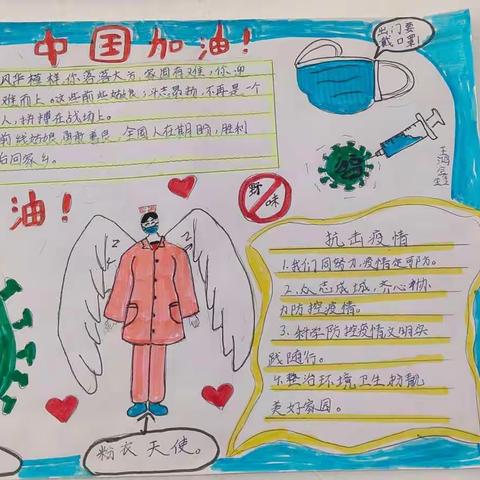 中国加油！
风华模样，你落落大方，家国有难，你迎
难而上。这些前线姑娘，斗志昂扬，不再是一个
人，拼搏在战场上。
前线姑娘 勇敢善良，全国人在期盼，胜利
回家乡。
出门要
戴口罩！
油！
野味
抗击疫情
1.我们同努力，疫情定可防。
2.众志成城，齐心协
力防控疫情。
3.科学防控疫情文明实
践随行。
整治环境卫生扮靓
美好家园。
粉衣天使。